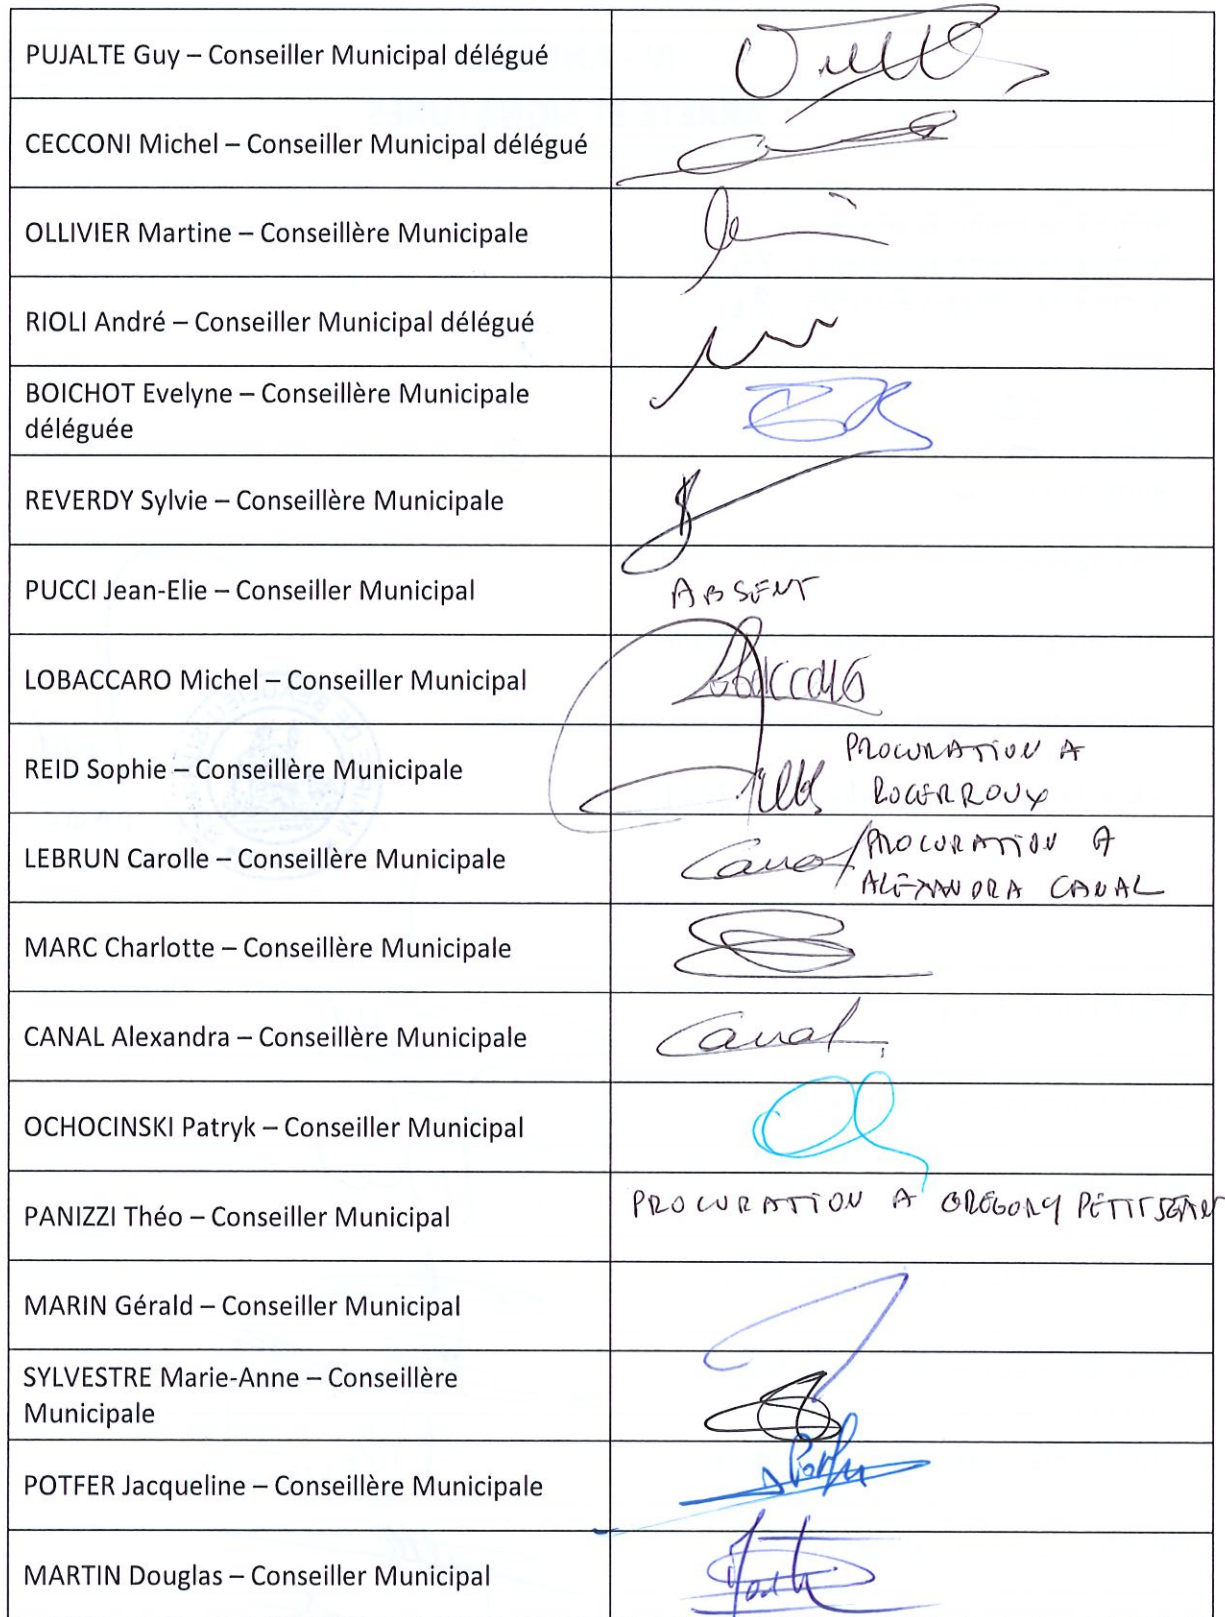 PUJALTE Guy – Conseiller Municipal délégué
CECCONI Michel – Conseiller Municipal délégué
OLLIVIER Martine – Conseillère Municipale
RIOLI André – Conseiller Municipal délégué
BOICHOT Evelyne – Conseillère Municipale
déléguée
REVERDY Sylvie – Conseillère Municipale
PUCCI Jean-Elie – Conseiller Municipal
ABSENT
LOBACCARO Michel – Conseiller Municipal
REID Sophie – Conseillère Municipale
PROCURATION A
ROGER ROUX
LEBRUN Carolle – Conseillère Municipale
Canal
PROCURATION A
ALEXANDRA CANAL
MARC Charlotte – Conseillère Municipale
CANAL Alexandra – Conseillère Municipale
Canal
OCHOCINSKI Patryk – Conseiller Municipal
PANIZZI Théo – Conseiller Municipal
PROCURATION A GREGORY PETITJEAN
MARIN Gérald – Conseiller Municipal
SYLVESTRE Marie-Anne – Conseillère
Municipale
POTFER Jacqueline – Conseillère Municipale
MARTIN Douglas – Conseiller Municipal